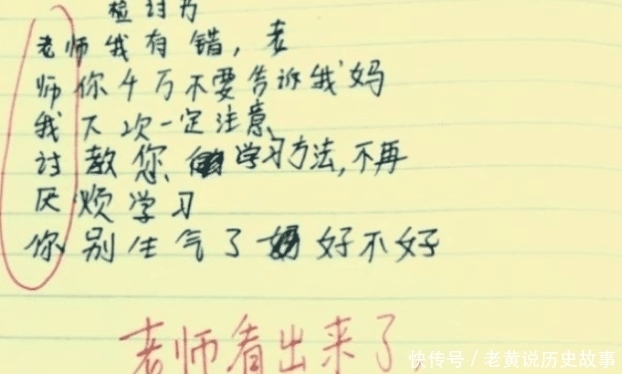 检讨书
老师我有错，老
师你千万不要告诉我妈
我下次一定注意
讨教您学习方法，不再
厌烦学习
你别生气了好不好
老师看出来了
快传号／老黄说历史故事